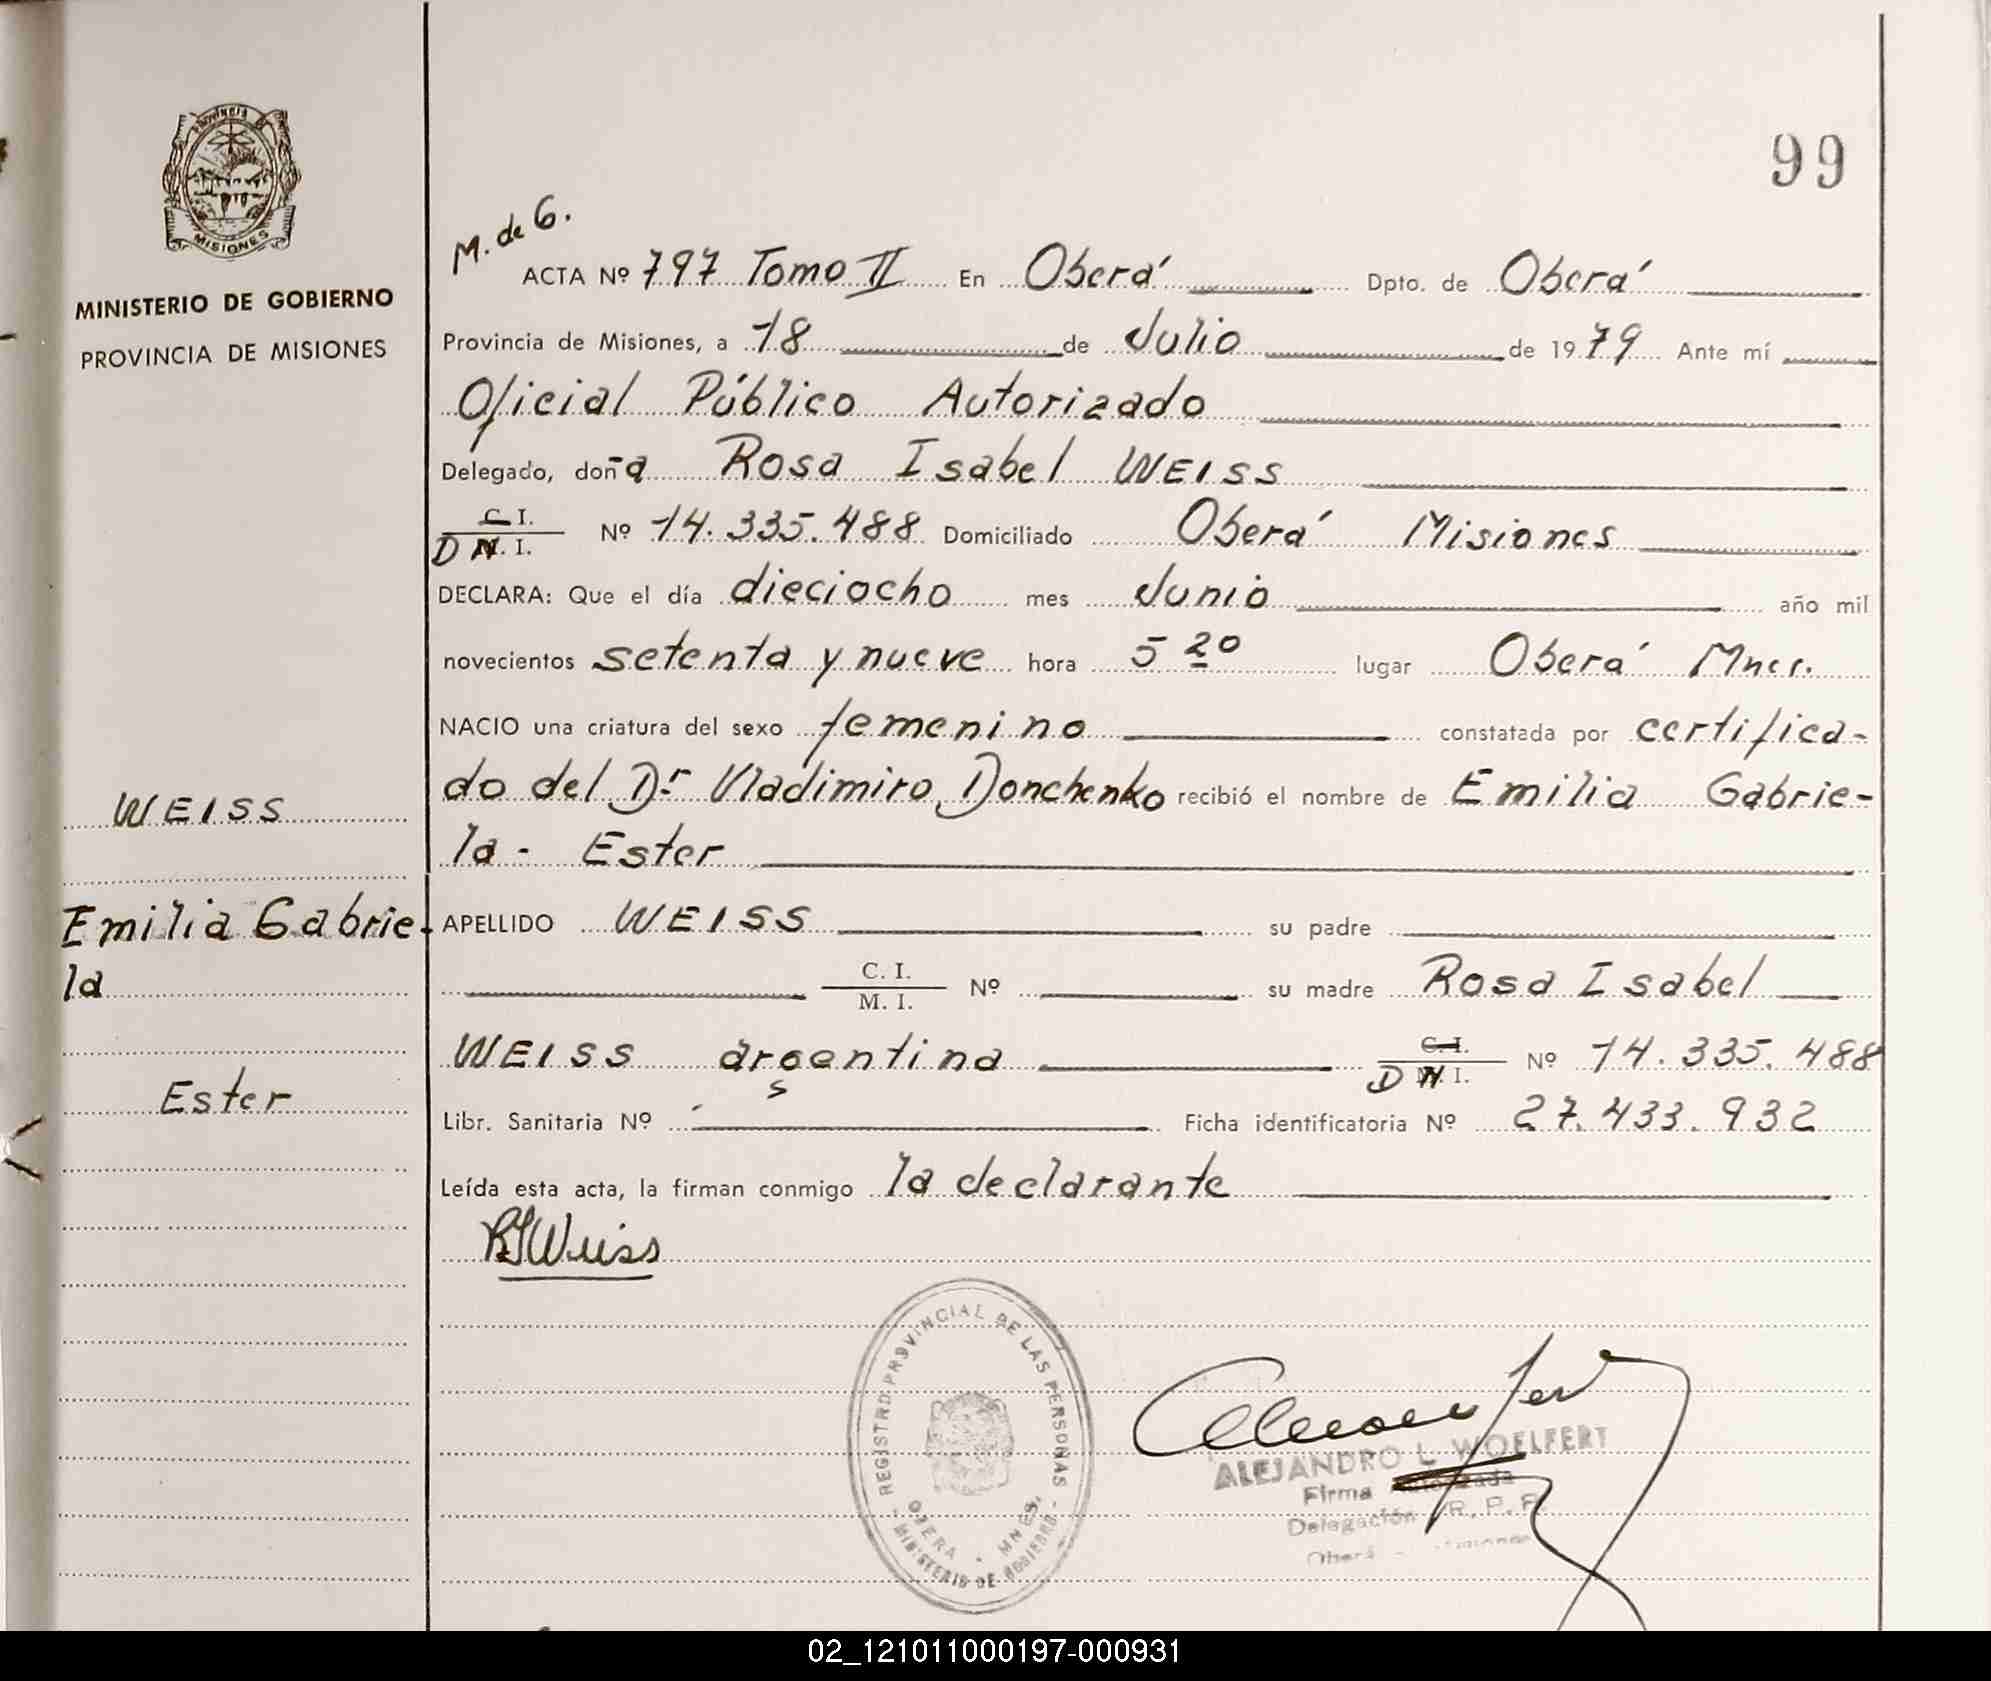 99
Provincia de
MISIONES
MINISTERIO DE GOBIERNO
PROVINCIA DE MISIONES
M. de G.
ACTA Nº 797 Tomo II En Oberá Dpto. de Oberá
Provincia de Misiones, a 18 de Julio de 1979 Ante mí
Oficial Público Autorizado
Delegado, doña Rosa Isabel WEISS
C. I.
D N. I. Nº 14.335.488 Domiciliado Oberá Misiones
DECLARA: Que el día dieciocho mes Junio año mil
novecientos setenta y nueve hora 5 20 lugar Oberá Mnes.
NACIO una criatura del sexo femenino constatada por certifica-
do del Dr Vladimiro Donchenko recibió el nombre de Emilia Gabrie-
la - Ester
WEISS
Emilia Gabrie-
la
Ester
APELLIDO WEISS su padre
C. I.
M. I. Nº su madre Rosa Isabel
WEISS argentina C. I.
D N I. Nº 14.335.488
Libr. Sanitaria Nº Ficha identificatoria Nº 27.433.932
Leída esta acta, la firman conmigo la declarante
RIWeiss
REGISTRO PROVINCIAL DE LAS PERSONAS
OBERA - MNES.
- MINISTERIO DE GOBIERNO -
ALEJANDRO L. WOELFERT
Firma
Delegación R. P. P.
Oberá - Misiones
02_121011000197-000931